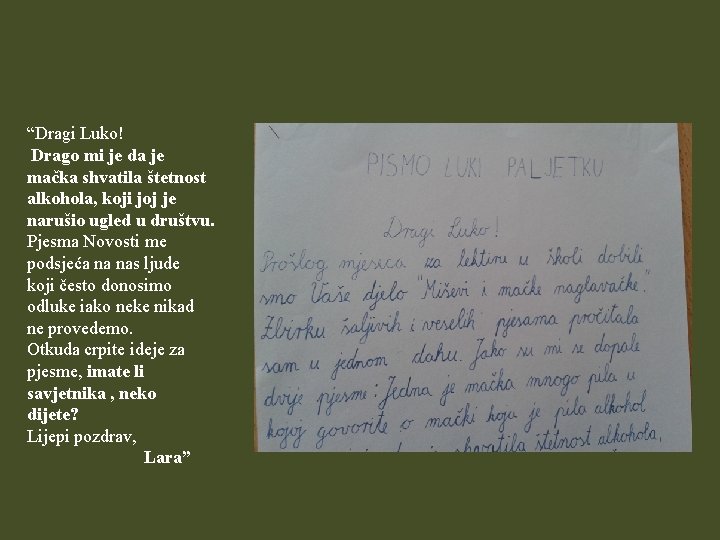 “Dragi Luko!
Drago mi je da je
mačka shvatila štetnost
alkohola, koji joj je
narušio ugled u društvu.
Pjesma Novosti me
podsjeća na nas ljude
koji često donosimo
odluke iako neke nikad
ne provedemo.
Otkuda crpite ideje za
pjesme, imate li
savjetnika , neko
dijete?
Lijepi pozdrav,
Lara”
PISMO LUKI PALJETKU
Dragi Luko!
Prošlog mjeseca za lektiru u školi dobili
smo Vaše djelo "Miševi i mačke naglavačke".
Zbirku šaljivih i veselih pjesama pročitala
sam u jednom dahu. Jako su mi se dopale
dvije pjesme: Jedna je mačka mnogo pila u
kojoj govorite o mački koja je pila alkohol
shvatila štetnost alkohola,